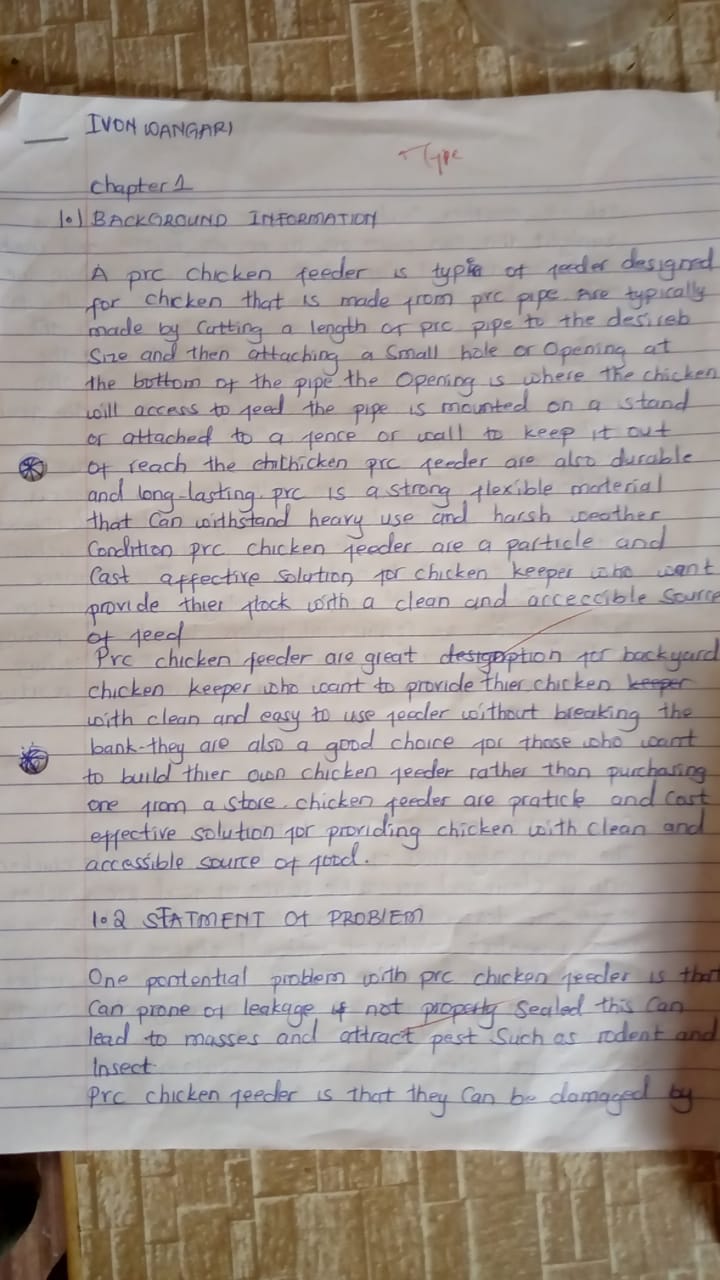 IVON WANGARI
Type
Chapter 1
1.1 BACKGROUND INFORMATION
A prc chicken feeder is type of feeder designed
for chcken that is made from prc pipe are typically
made by Cutting a length of prc pipe to the desireb
Size and then attaching a Small hole or Opening at
the bottom of the pipe the Opening is where the chicken
will access to feed the pipe is mounted on a stand
or attached to a fence or wall to keep it out
of reach the chicken prc feeder are also durable
and long-lasting prc is a strong flexible material
that Can withstand heavy use and harsh weather
Condition prc chicken feeder are a particle and
Cast affective solution for chicken keeper who want
provide thier flock with a clean and acceccible Source
of feed
Prc chicken feeder are great option for backyard
chicken keeper who want to provide thier chicken keeper
with clean and easy to use feeder without breaking the
bank-they are also a good choice for those who want
to build thier own chicken feeder rather than purchasing
one from a store. chicken feeder are praticle and Cost
effective solution for providing chicken with clean and
accessible source of food.
1.2 STATMENT Of PROBLEM
One pontential problem with prc chicken feeder is that
Can prone of leakage if not properly Sealed this Can
lead to masses and attract pest Such as rodent and
Insect
Prc chicken feeder is that they Can be damaged by